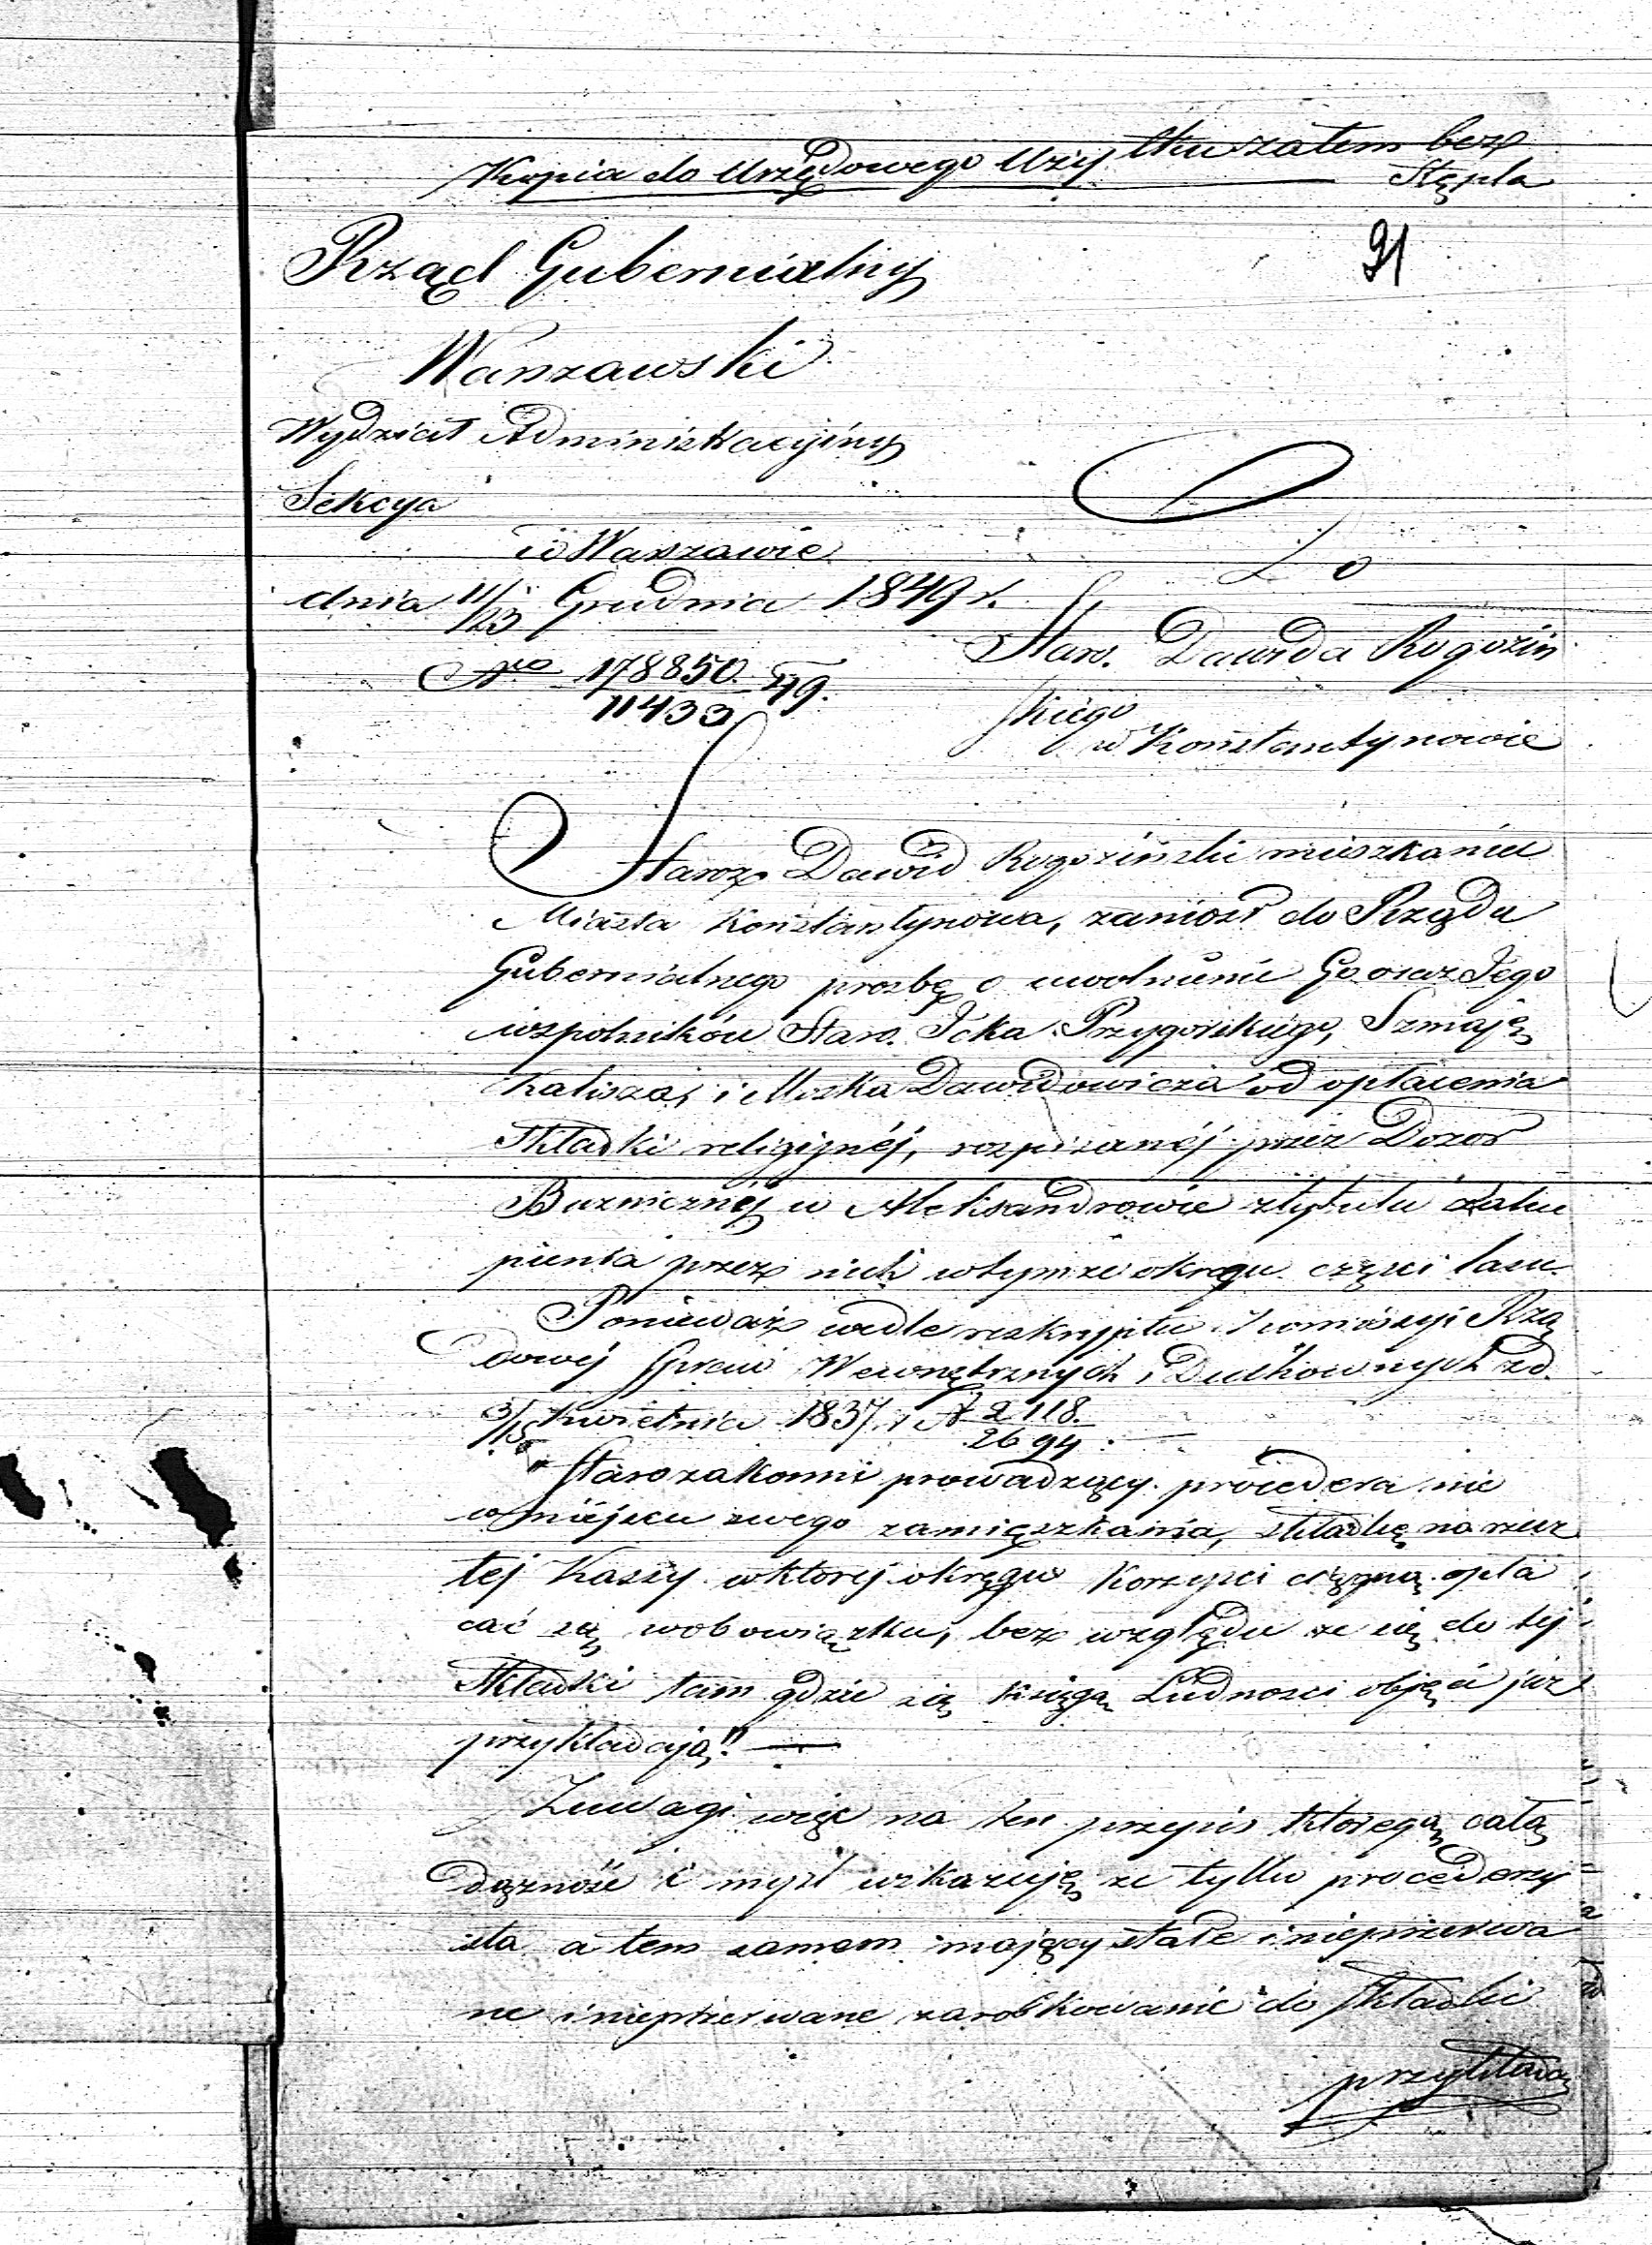 Kopia do Urzędowego Użytku zatem bez
Stępla
91
Rząd Gubernialny
Warszawski
Wydział Administracyjny
Sekcya
w Warszawie
dnia 11/23 Grudnia 1849 r.
Do
Staro. Dawida Rogoziń
skiego
w Konstantynowie
Nro 178850/11433 49.
Staroz. Dawid Rogoziński mieszkaniec
Miasta Konstantynowa, zaniosł do Rządu
Gubernialnego prosbę o uwolnienie Go oraz Jego
wspolników Staro. Icka Przygorskiego, Szmaję
Kalisza, i Moszka Dawidowicza od opłacenia
Składki religijnéj, rozpisanéj przez Dozor
Bozniczny w Aleksandrowie z tytułu zaku
pienia przez nich w tymże okręgu części lasu.
Ponieważ wedle reskryptu Kommissyi Rzą
dowej Spraw Wewnętrznych i Duchownych z d.
3/15 Kwietnia 1837 r. N 2118/2694
"Starozakonni prowadzący procedera nie
w miejscu swego zamięszkania, składkę na rzecz
tej Kassy w ktorej okręgu korzysci ciągną opła
cać są w obowiązku, bez względu że się do tej
Składki tam gdzie są księgą Ludnosci objęci już
przykładają". —
Z uwagi więc na ten przepis ktorego cała
dążność i myśl wskazuję że tylko procederzy
sta a tem samem mający stałe i nieprzerwa
ne i nieprzerwane zarobkowanie do składki
przykłada